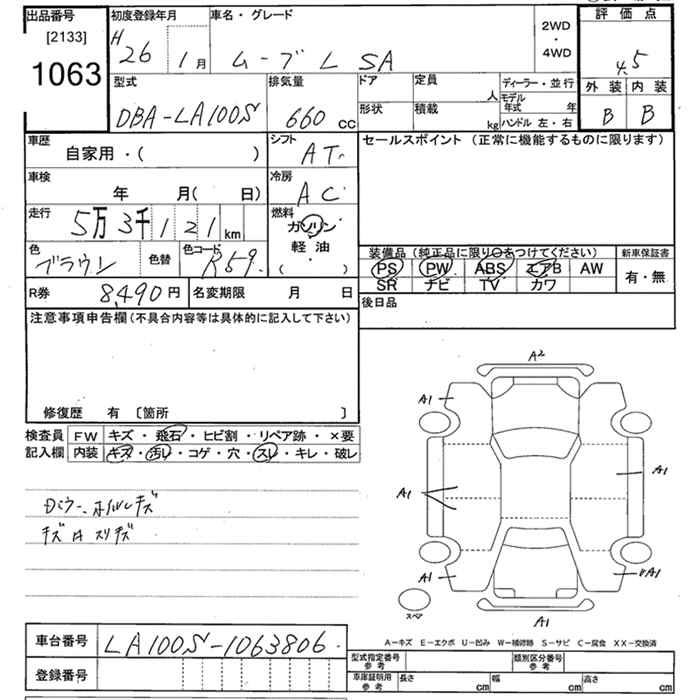 出品番号
[2133]
1063
初度登録年月
H 26 年 1月
車名・グレード
ムーブ L SA
2WD
・
4WD
評価点
4.5
外装 内装
B B
型式
DBA-LA100S
排気量
660 cc
ドア
形状
定員
人
積載
kg
ディーラー・並行
モデル年式 年
ハンドル 左・右
車歴
自家用・( )
シフト
AT
セールスポイント (正常に機能するものに限ります)
車検
年 月( 日)
冷房
AC
走行
5万3千121km
燃料
ガソリン
軽油
・
( )
色
ブラウン
色替
色コード
R59
装備品(純正品に限り○をつけてください)
PS PW ABS エアB AW
SR ナビ TV カワ
新車保証書
有・無
R券
8,490円
名変期限 月 日
後日品
注意事項申告欄(不具合内容等は具体的に記入して下さい)
修復歴 有 〔箇所 〕
検査員
記入欄
FW キズ・飛石・ヒビ割・リペア跡・×要
内装 キズ・汚レ・コゲ・穴・スレ・キレ・破レ
ホイルキズ
キズ A スリキズ
A2
A1
A1
A1
A1
A1
A1
スペア
A-キズ E-エクボ U-凹み W-補修跡 S-サビ C-腐食 XX-交換済
車台番号
LA100S-1063806
登録番号
型式指定番号
参考
類別区分番号
参考
車庫証明用
参考
長さ cm
幅 cm
高さ cm